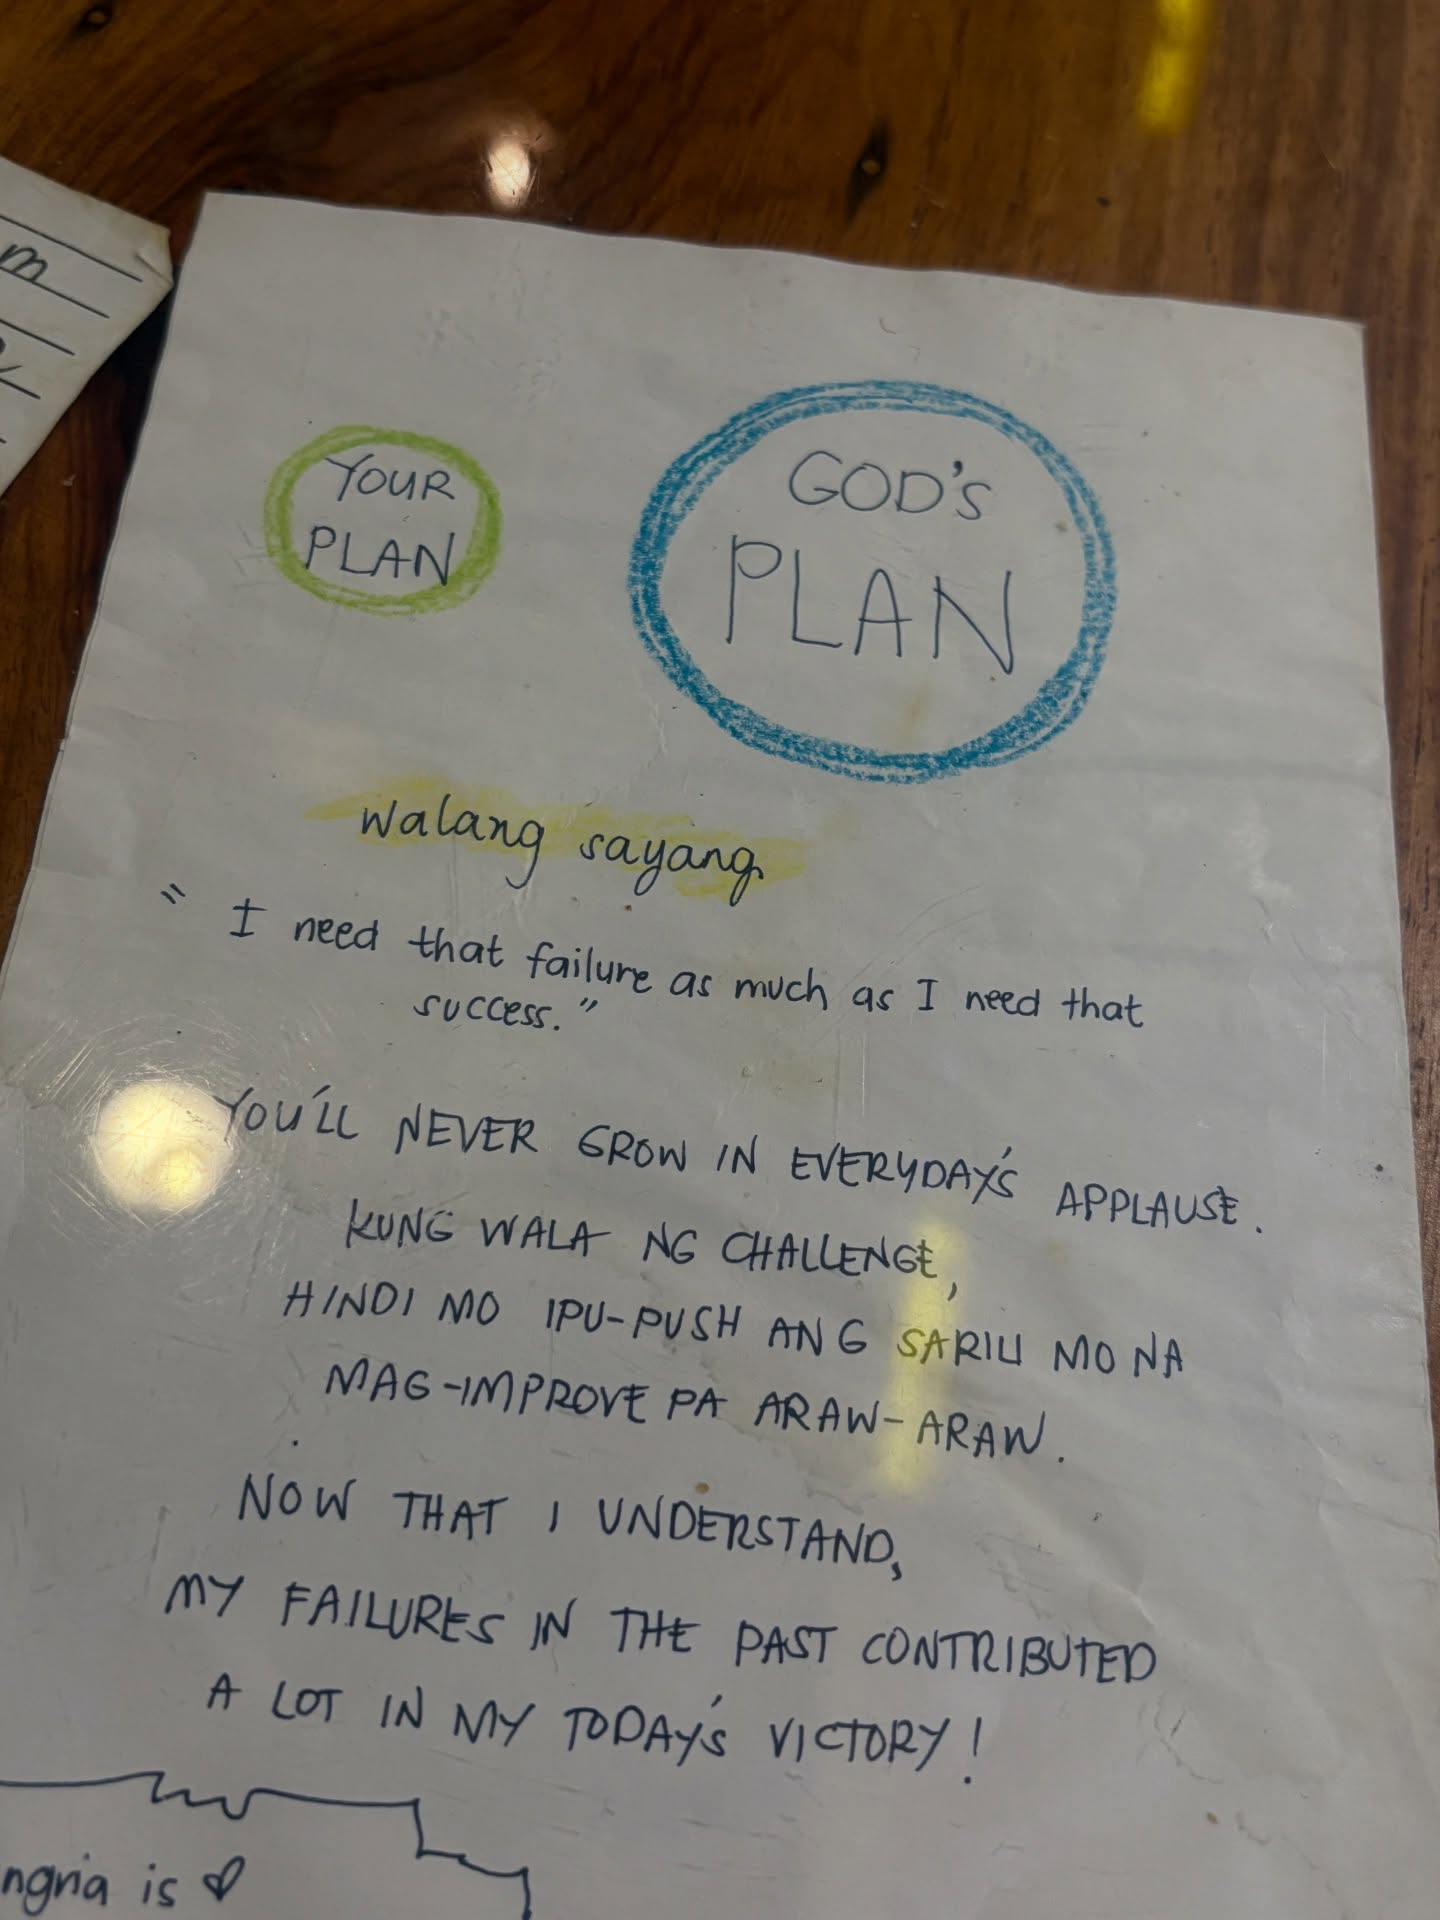 m
YOUR
PLAN
GOD'S
PLAN
walang sayang
" I need that failure as much as I need that
success."
YOU'LL NEVER GROW IN EVERYDAY'S APPLAUSE.
KUNG WALA NG CHALLENGE,
HINDI MO IPU-PUSH ANG SARILI MO NA
MAG-IMPROVE PA ARAW-ARAW.
NOW THAT I UNDERSTAND,
MY FAILURES IN THE PAST CONTRIBUTED
A LOT IN MY TODAY'S VICTORY!
ngria is